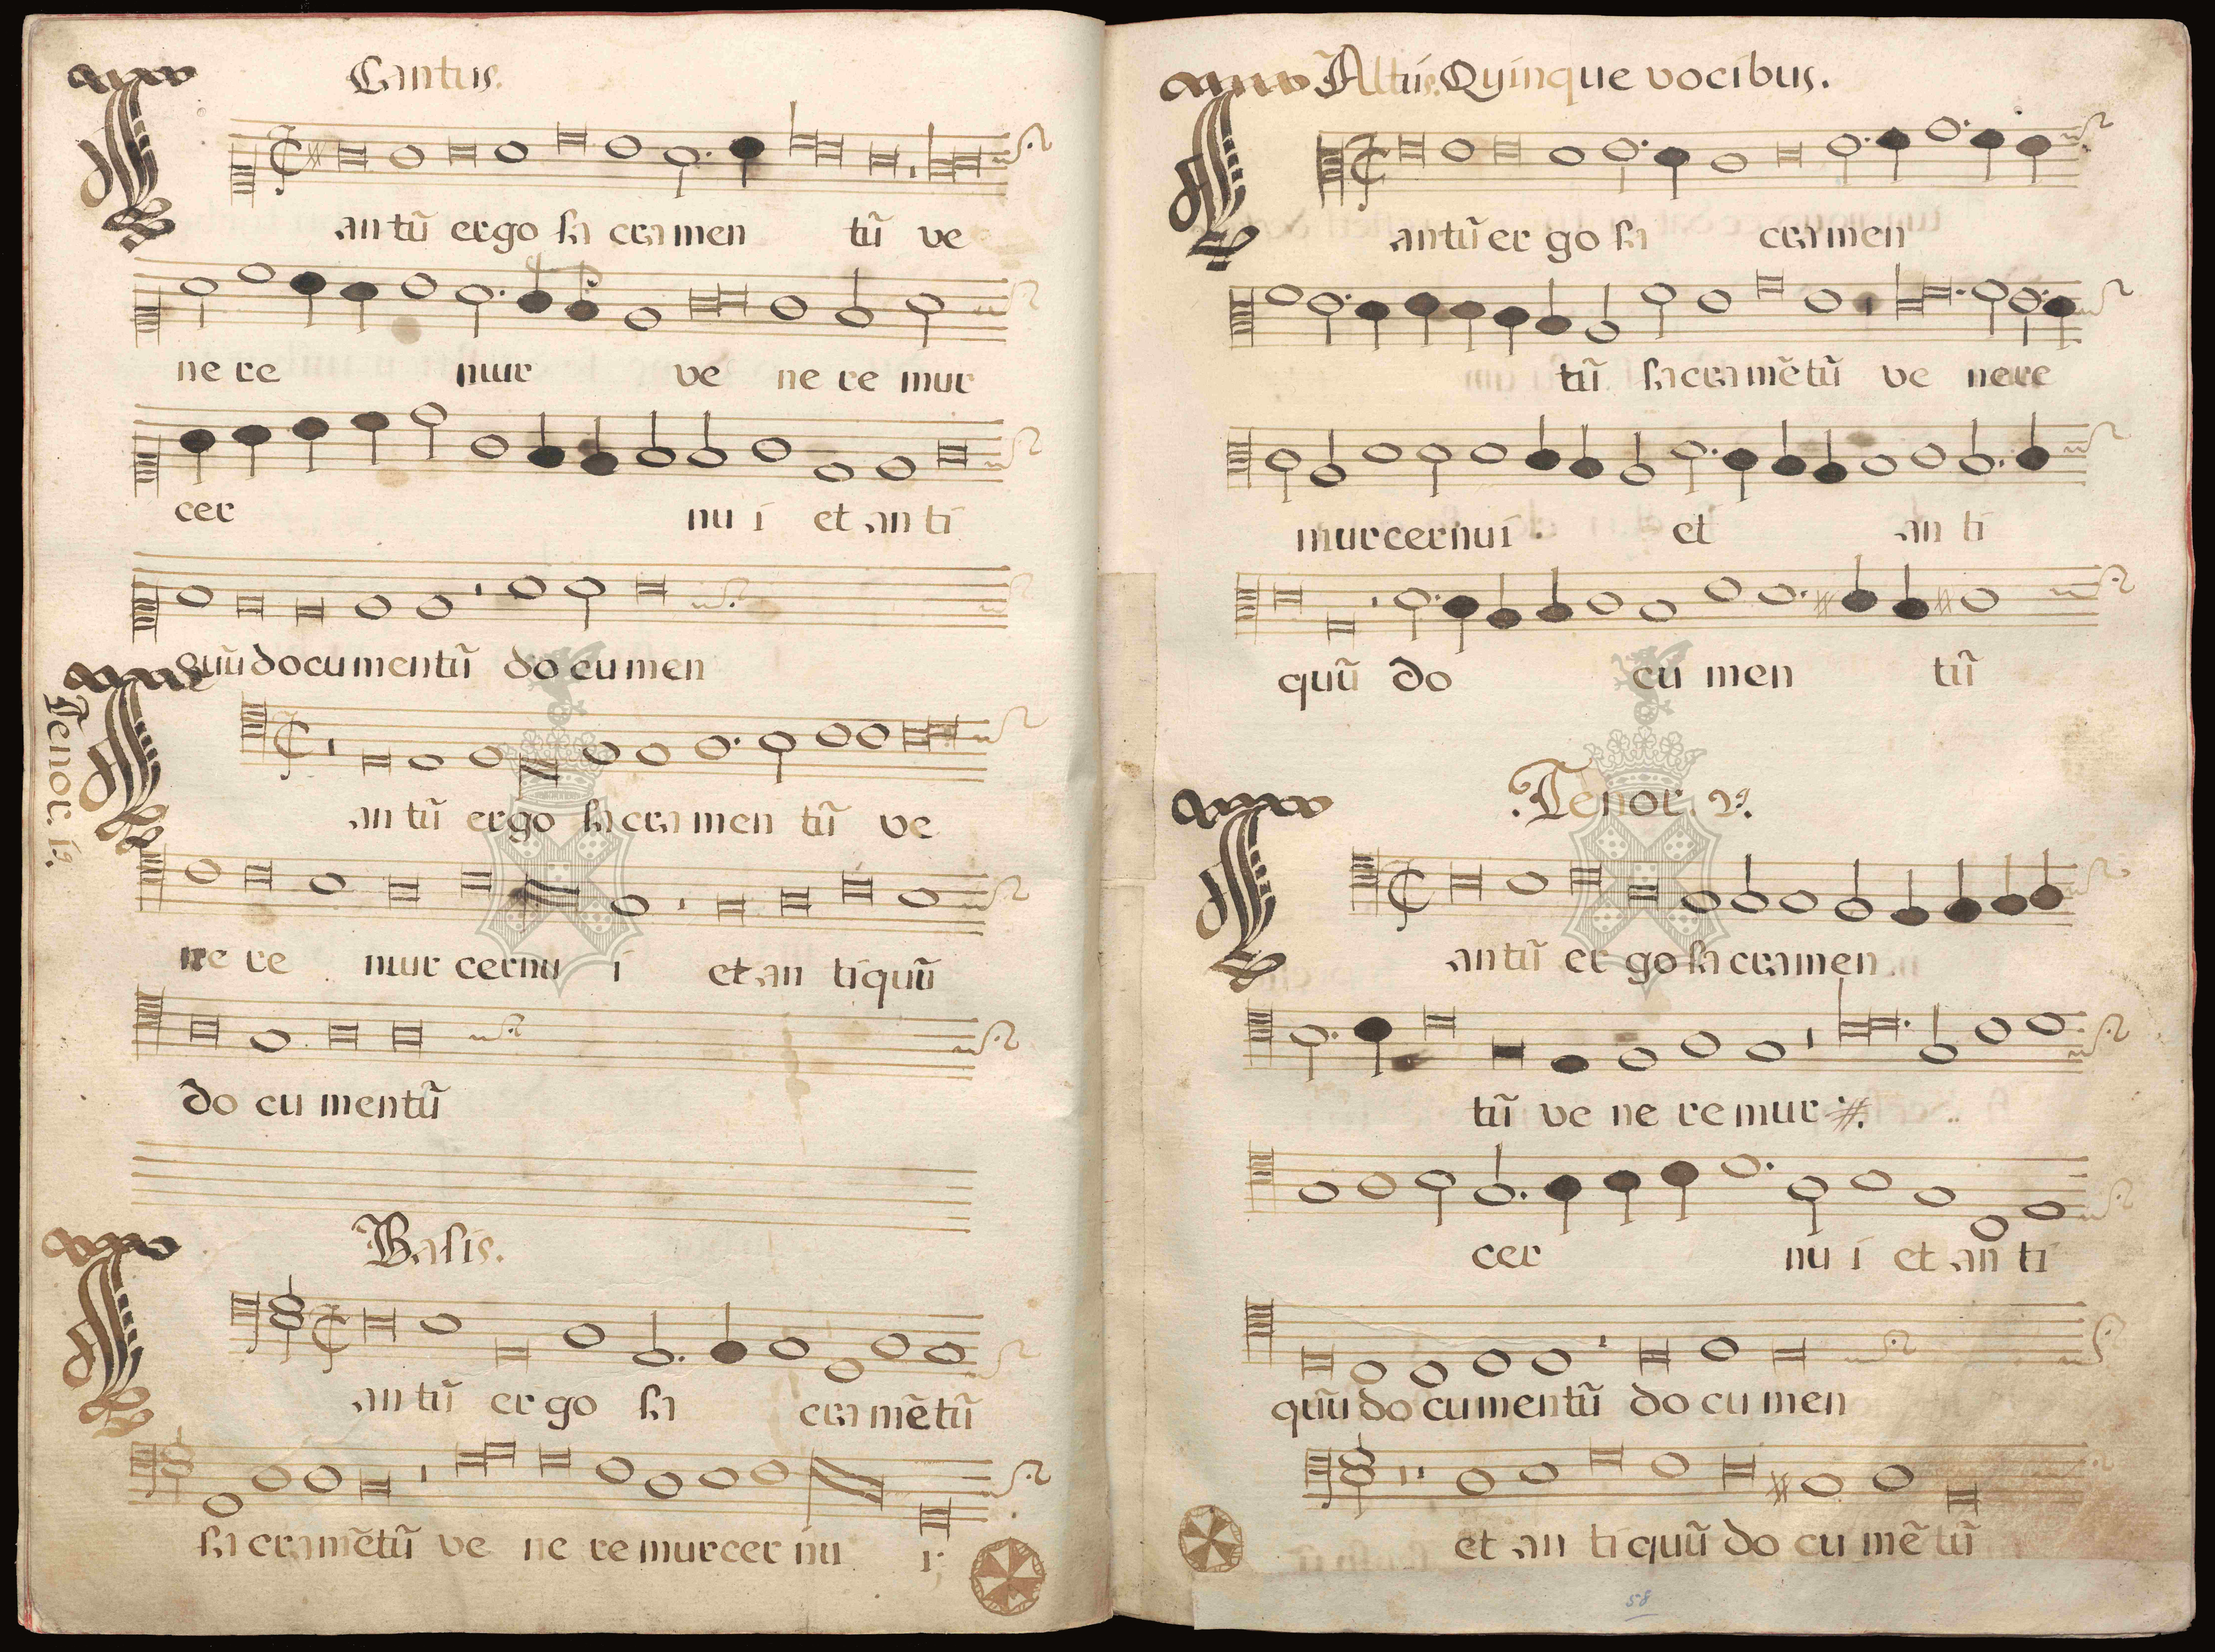 Cantus.
Tantũ ergo sa cramen tũ ve
ne re mur ve ne re mur
cer nu i et an ti
quũ documentũ do cu men
Tenor. 1º.
Tantũ ergo sa cra men tũ ve
ne re mur cernu i et an tiquũ
do cu mentũ
Basis.
Tantũ er go sa cra mẽtũ
sa cramẽtũ ve ne re mur cer nu i
Altus. Quinque vocibus.
Tantũ er go sa cramen
tũ sa cra mẽtũ ve nere
mur cernui et an ti
quũ do cu men tũ
Tenor. 2º.
Tantũ er go sa cramen
tũ ve ne re mur
cer nu i et an ti
quũ do cumentũ do cu men
et an ti quũ do cu mẽ tũ
58